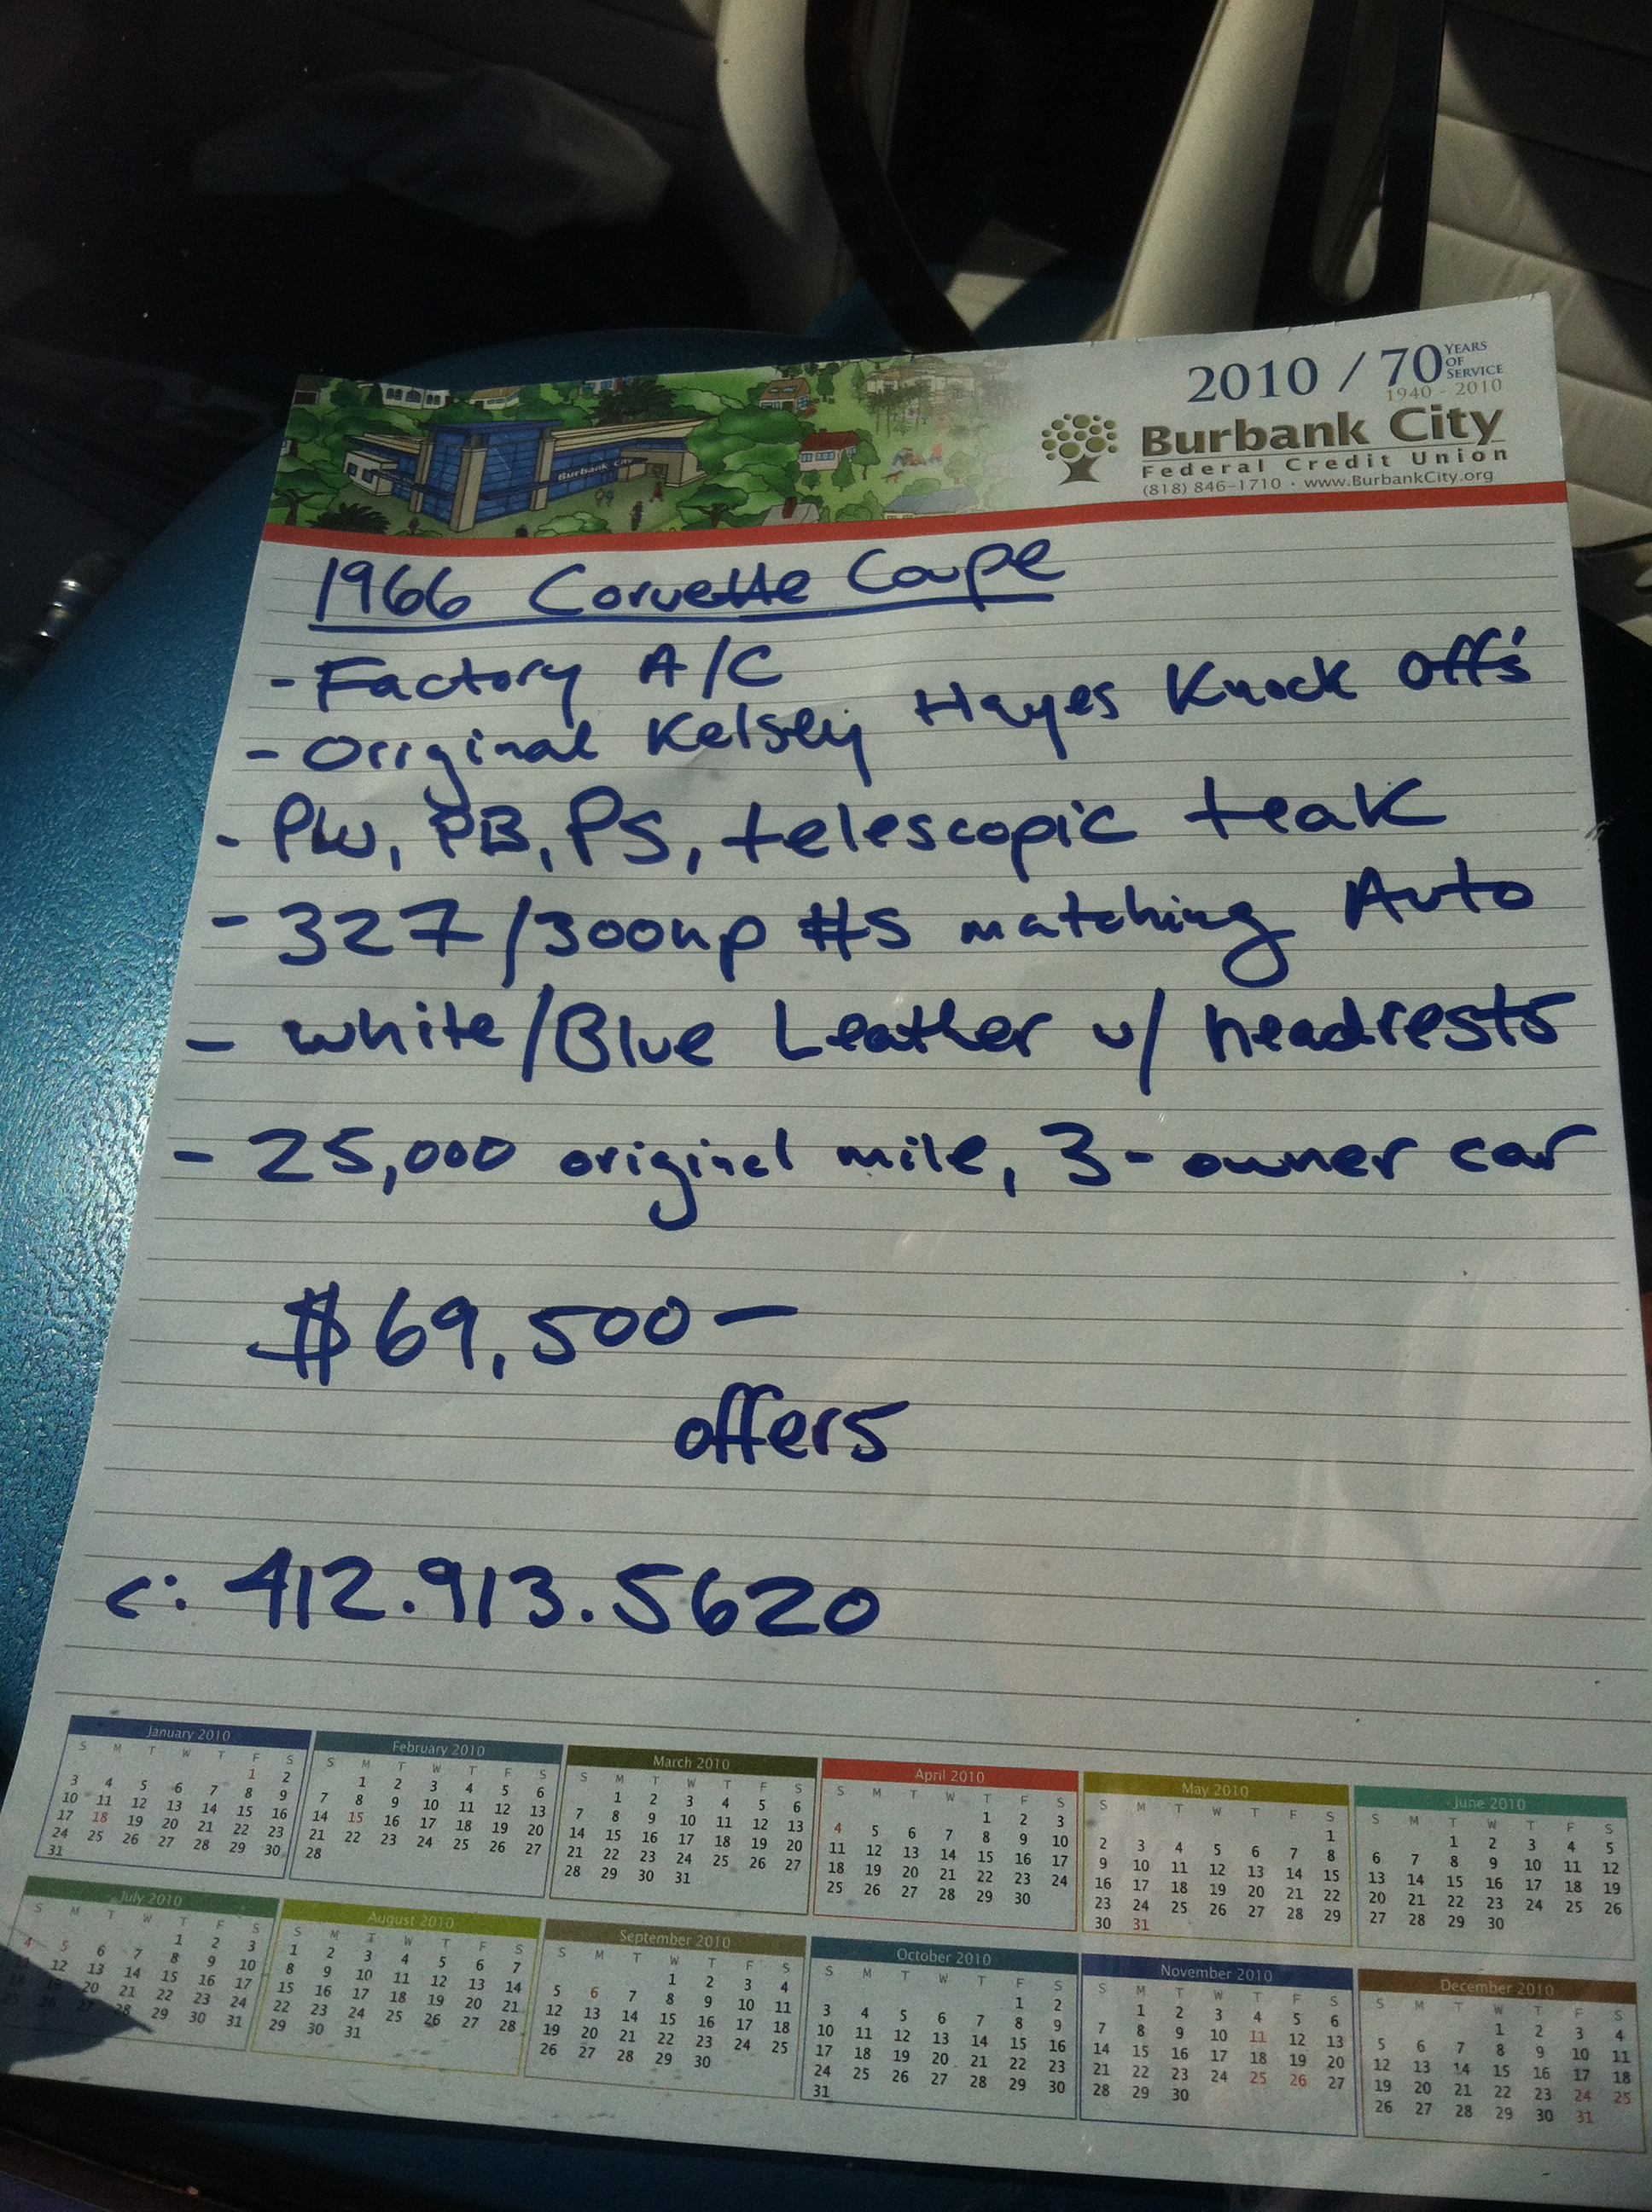 2010 / 70 YEARS OF SERVICE
1940 - 2010
Burbank City
Burbank City
Federal Credit Union
(818) 846-1710 · www.BurbankCity.org
1966 Corvette Coupe
- Factory A/C
- Original Kelsey Hayes Knock Off's
- PW, PB, PS, telescopic teak
- 327/300hp #s matching Auto
- white/Blue Leather w/ headrests
- 25,000 original mile, 3-owner car
$69,500-
offers
c: 412.913.5620
January 2010
S M T W T F S
1 2
3 4 5 6 7 8 9
10 11 12 13 14 15 16
17 18 19 20 21 22 23
24 25 26 27 28 29 30
31
February 2010
S M T W T F S
1 2 3 4 5 6
7 8 9 10 11 12 13
14 15 16 17 18 19 20
21 22 23 24 25 26 27
28
March 2010
S M T W T F S
1 2 3 4 5 6
7 8 9 10 11 12 13
14 15 16 17 18 19 20
21 22 23 24 25 26 27
28 29 30 31
April 2010
S M T W T F S
1 2 3
4 5 6 7 8 9 10
11 12 13 14 15 16 17
18 19 20 21 22 23 24
25 26 27 28 29 30
May 2010
S M T W T F S
1
2 3 4 5 6 7 8
9 10 11 12 13 14 15
16 17 18 19 20 21 22
23 24 25 26 27 28 29
30 31
June 2010
S M T W T F S
1 2 3 4 5
6 7 8 9 10 11 12
13 14 15 16 17 18 19
20 21 22 23 24 25 26
27 28 29 30
July 2010
S M T W T F S
1 2 3
4 5 6 7 8 9 10
11 12 13 14 15 16 17
18 19 20 21 22 23 24
25 26 27 28 29 30 31
August 2010
S M T W T F S
1 2 3 4 5 6 7
8 9 10 11 12 13 14
15 16 17 18 19 20 21
22 23 24 25 26 27 28
29 30 31
September 2010
S M T W T F S
1 2 3 4
5 6 7 8 9 10 11
12 13 14 15 16 17 18
19 20 21 22 23 24 25
26 27 28 29 30
October 2010
S M T W T F S
1 2
3 4 5 6 7 8 9
10 11 12 13 14 15 16
17 18 19 20 21 22 23
24 25 26 27 28 29 30
31
November 2010
S M T W T F S
1 2 3 4 5 6
7 8 9 10 11 12 13
14 15 16 17 18 19 20
21 22 23 24 25 26 27
28 29 30
December 2010
S M T W T F S
1 2 3 4
5 6 7 8 9 10 11
12 13 14 15 16 17 18
19 20 21 22 23 24 25
26 27 28 29 30 31